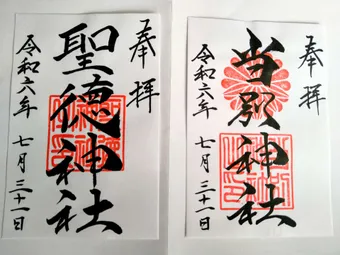 奉拝
当別神社
令和六年 七月三十一日
奉拝
聖徳神社
令和六年 七月三十一日